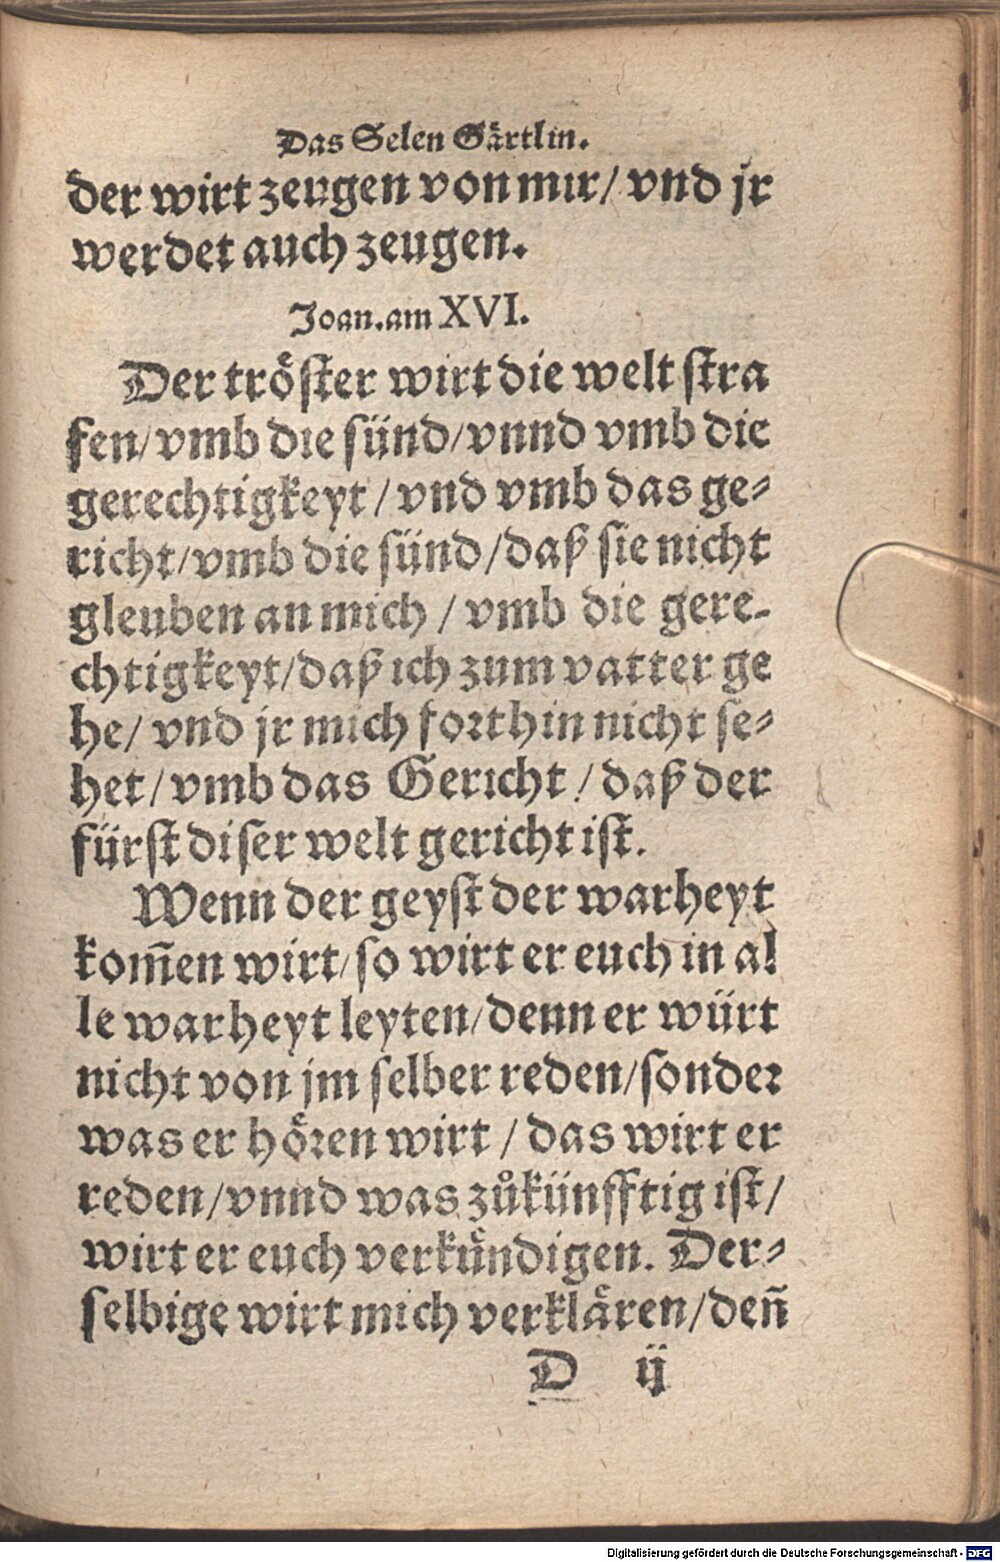 Das Selen Gärtlin.
der wirt zeugen von mir/ vnd jr
werdet auch zeugen.
Joan. am XVI.
Der tröſter wirt die welt ſtra
fen/ vmb die ſünd/ vnnd vmb die
gerechtigkeyt / vnd vmb das ge⸗
richt/ vmb die ſünd/ daß ſie nicht
gleuben an mich / vmb die gere⸗
chtigkeyt/ daß ich zum vatter ge
he/ vnd jr mich forthin nicht ſe⸗
het/ vmb das Gericht / daß der
fürſt diſer welt gericht iſt.
Wenn der geyſt der warheyt
kom̃en wirt/ ſo wirt er euch in al
le warheyt leyten/ denn er würt
nicht von jm ſelber reden/ ſonder
was er hören wirt / das wirt er
reden/ vnnd was zůkünfftig iſt/
wirt er euch verkündigen. Der⸗
ſelbige wirt mich verklären/ deñ
D ij
Digitalisierung gefördert durch die Deutsche Forschungsgemeinschaft - DFG